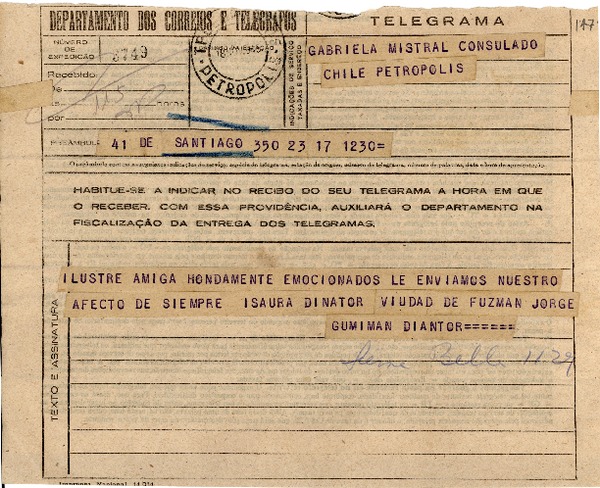 DEPARTAMENTO DOS CORREIOS E TELEGRAFOS
TELEGRAMA
147
NÚMERO
DE
EXPEDIÇÃO
3749
PETROPOLIS
INDICAÇÕES DE SERVIÇO
TAXADAS E ENDEREÇO
GABRIELA MISTRAL CONSULADO
CHILE PETROPOLIS
Recebido
De
às horas
por
PREÂMBULO 41 DE SANTIAGO 350 23 17 1230=
HABITUE-SE A INDICAR NO RECIBO DO SEU TELEGRAMA A HORA EM QUE
O RECEBER. COM ESSA PROVIDÊNCIA, AUXILIARÁ O DEPARTAMENTO NA
FISCALIZAÇÃO DA ENTREGA DOS TELEGRAMAS.
TEXTO E ASSINATURA
ILUSTRE AMIGA HONDAMENTE EMOCIONADOS LE ENVIAMOS NUESTRO
AFECTO DE SIEMPRE ISAURA DINATOR VIUDAD DE FUZMAN JORGE
GUMIMAN DIANTOR======
Imprensa Nacional